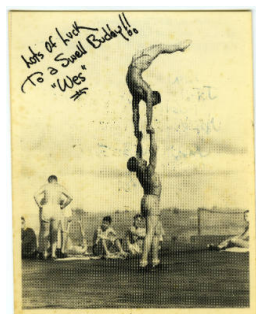 Lots of Luck
To a Swell Buddy!!
"Wes"